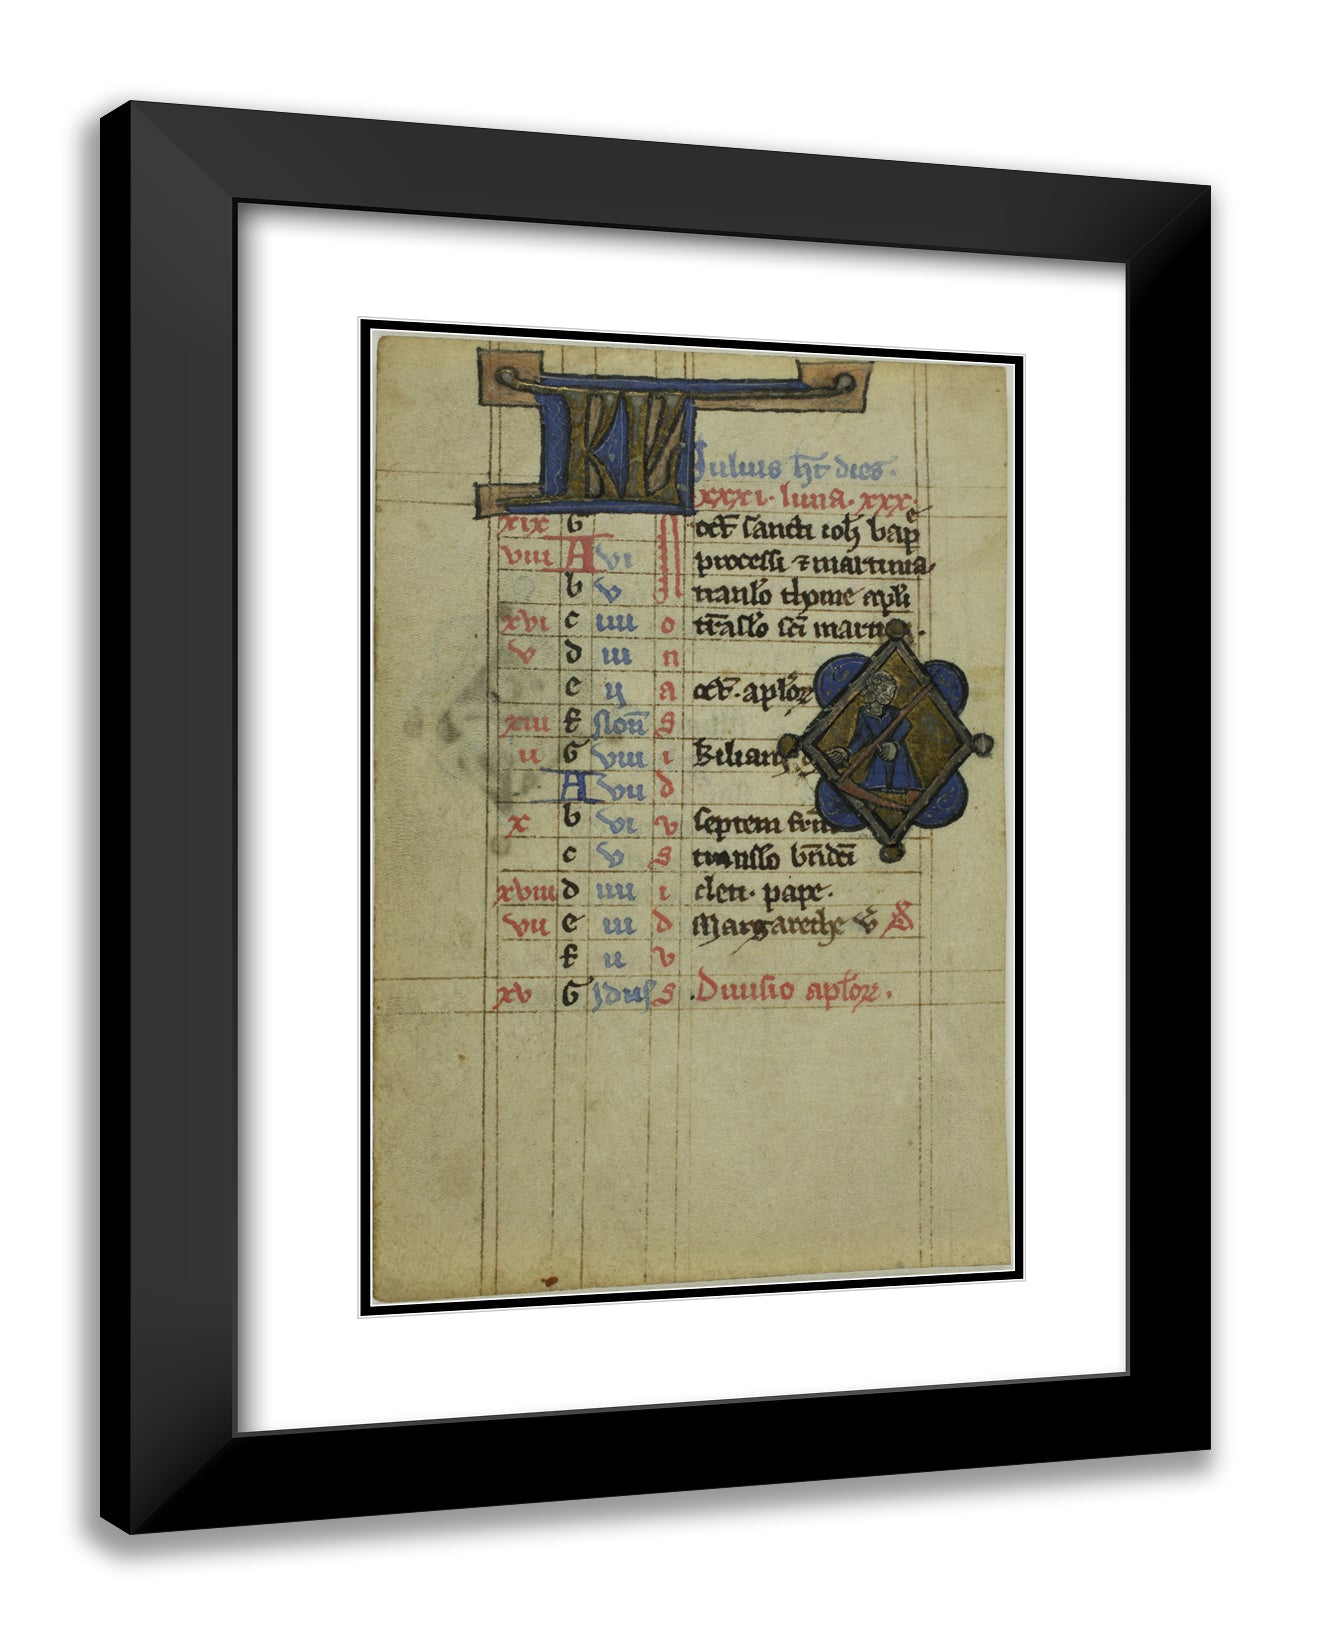 KL Iulius ht dies
xxxi. luna. xxx.
xix G oct sancti ioh bap
viii A vi N processi & martinia
b v translo thome apli
xvi c iiii o traslo sci martini.
v d iii n
e ii a oct. aplor
xiii f Non s
ii G viii i Kiliani
A vii d
x b vi v septem frm
c v s translo bndci
xviii d iiii i cleti. pape.
vii e iii d Margarethe v
f ii v
xv G Idus s .Diuisio aplor.